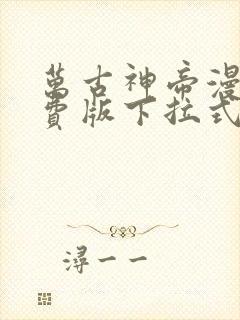 萬古神帝漫
費版下拉式
潯一一